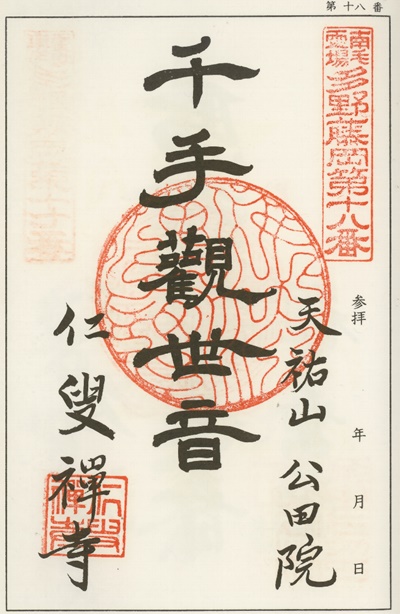 第十八番
南毛霊場
多野藤岡第十八番
参拝 年 月 日
天祐山 公田院
千手觀世音
仁叟禪寺